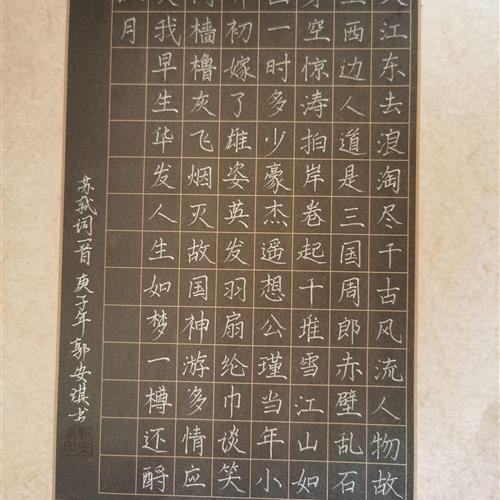 江东去浪淘尽千古风流人物故
西边人道是三国周郎赤壁乱石
空惊涛拍岸卷起千堆雪江山如
一时多少豪杰遥想公瑾当年小
初嫁了雄姿英发羽扇纶巾谈笑
樯橹灰飞烟灭故国神游多情应
我早生华发人生如梦一樽还酹
月
苏轼词一首 庚子年郭安琪书